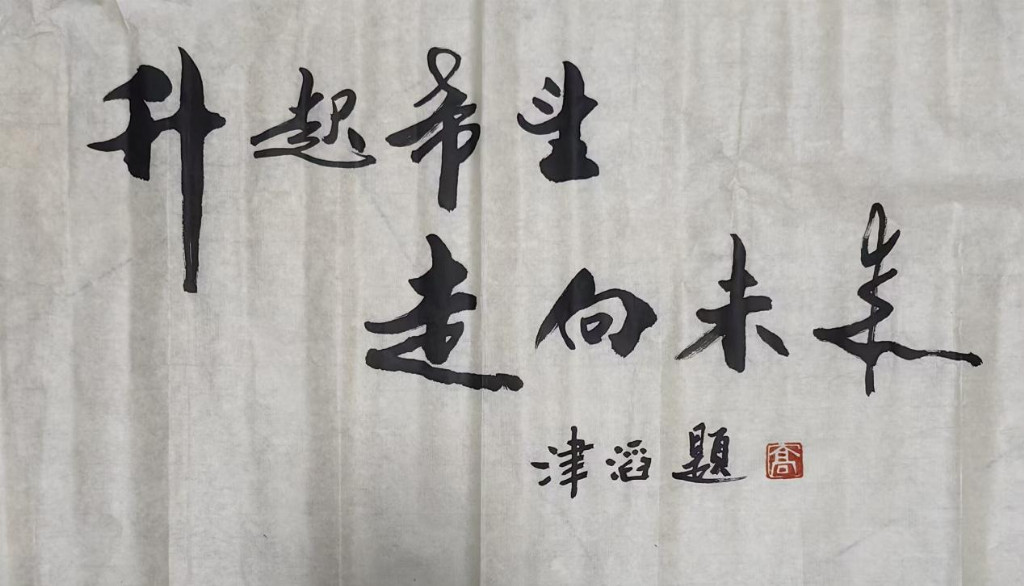 升起希望
走向未来
津滔題 高